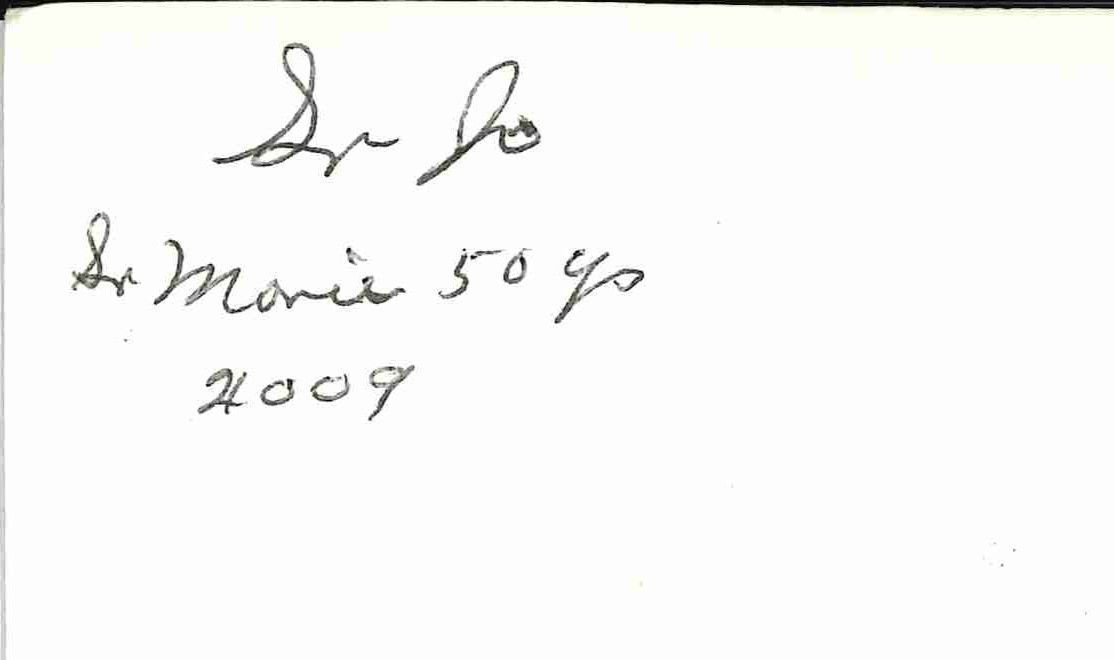 Sr Jo
Sr Marie 50 ys
2009